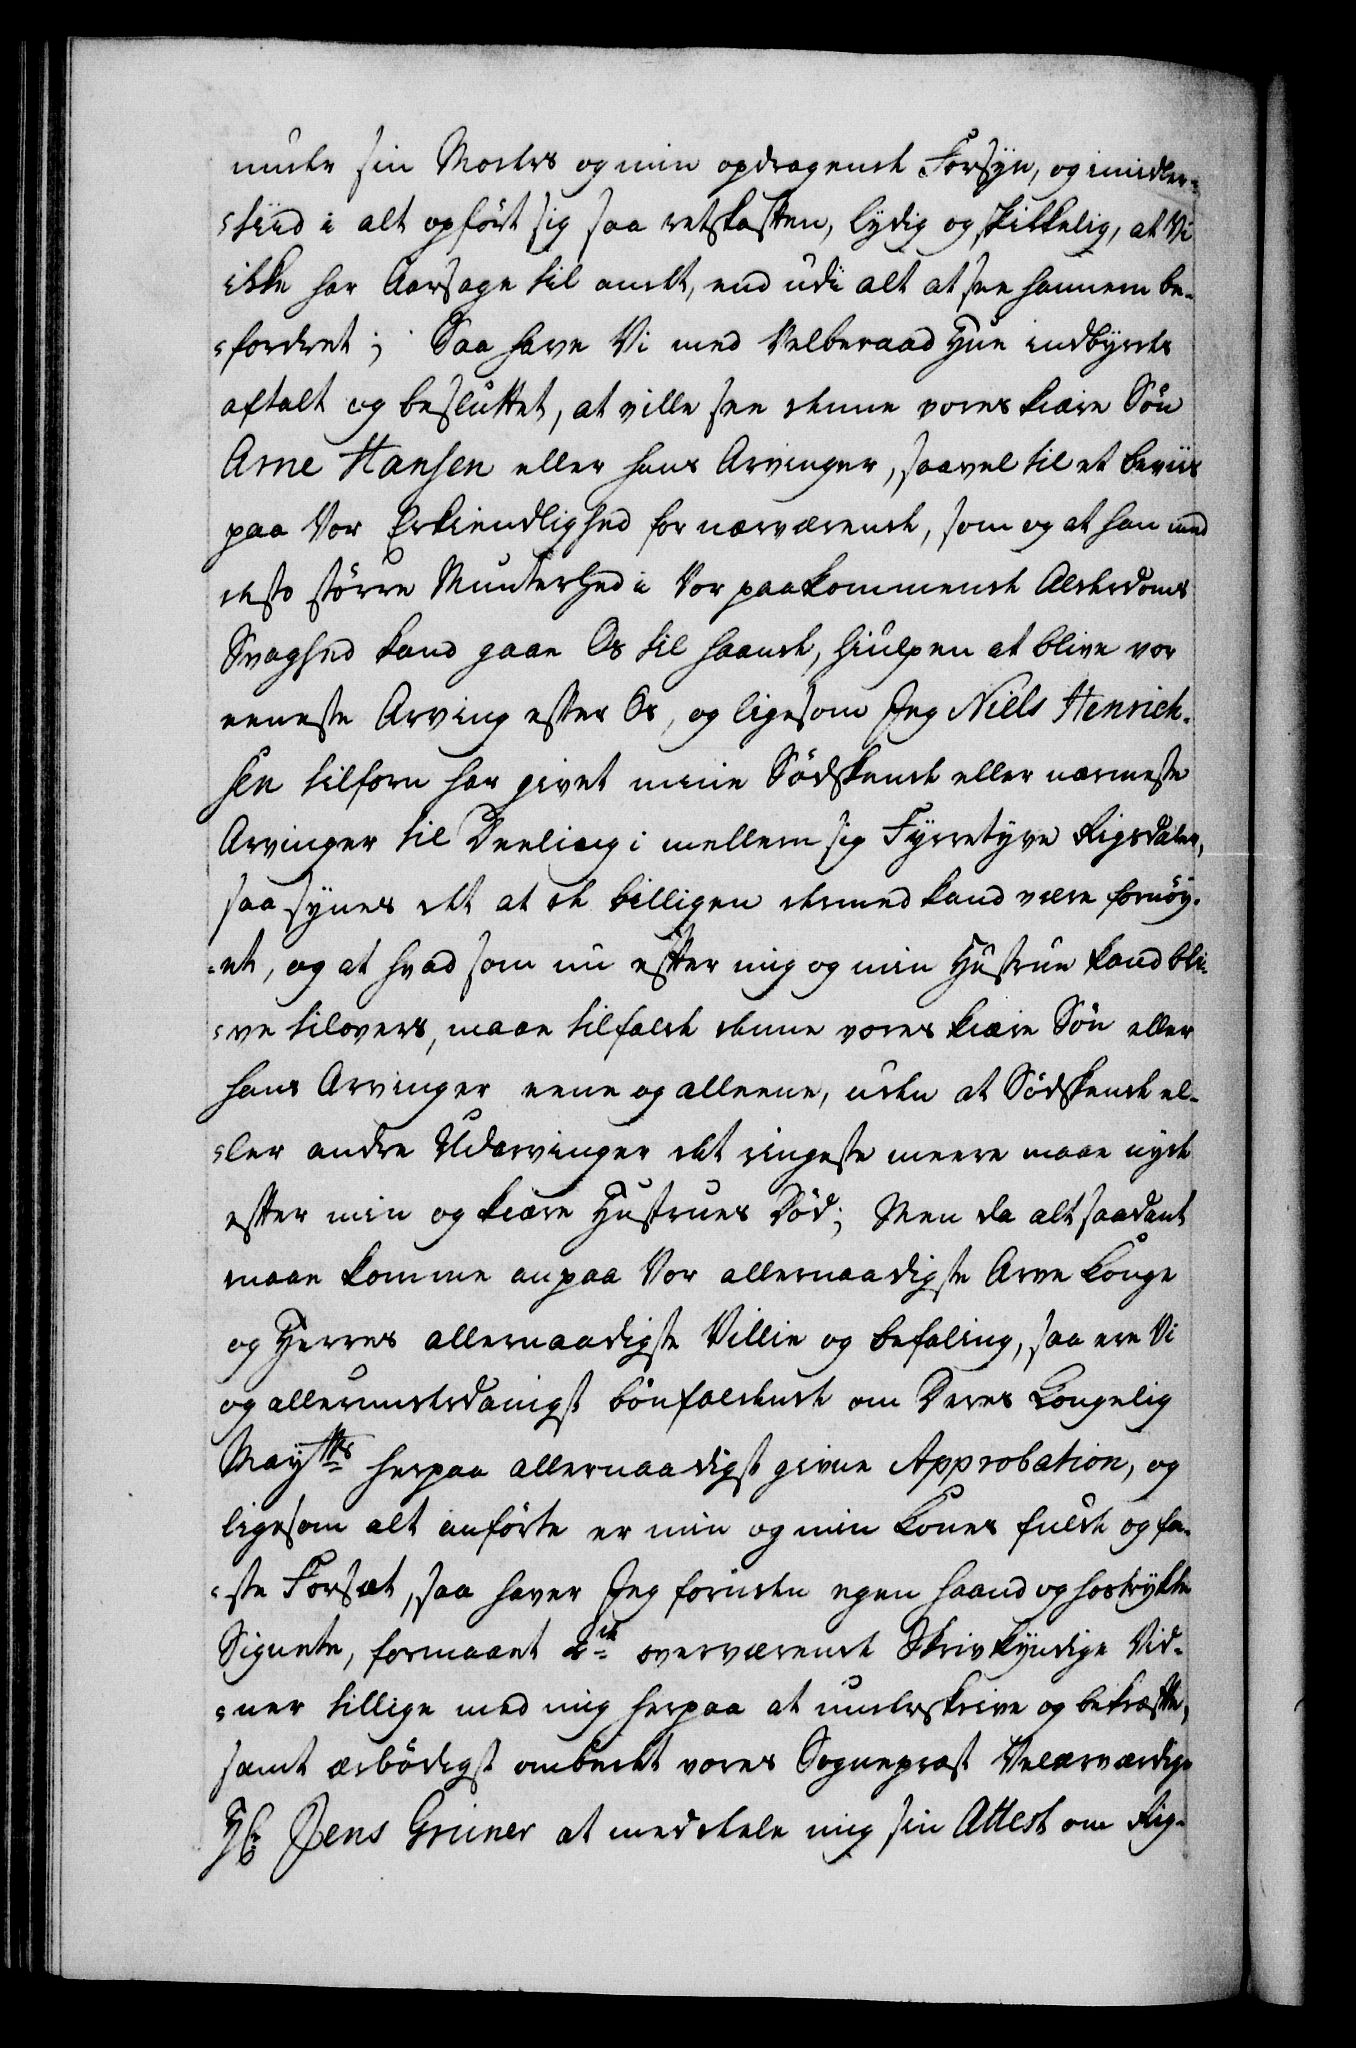 under sin Moders og min opdragende Forsÿn, og imidler-
-tiid i alt opført sig saa retskaffen, lydig og skikkelig, at Vi
ikke har Aarsage til andet, end udi alt at see hannem be-
-fordret; Saa have Vi med Velberaad Hue indbyrdes
aftalt og besluttet, at ville see denne vores kiære Søn
Arne Hansen eller hans Arvinger, saavel til et beviis
paa Vor Erkiendlighed for nærværende, som og at han med
desto større Munterhed i Vor paakommende Alderdoms
Svaghed kand gaae Os til haande, hiulpen at blive vor
eeneste Arving efter Os, og ligesom Jeg Niels Henrich-
sen tilforn har givet mine Sødskende eller nærmeste
Arvinger til Deeling i mellem sig Fyrretyve Rigsdaler,
saa synes det at de billigen dermed kand være fornøy-
-et, og at hvad som nu efter mig og min Hustrue kand bli-
-ve tilovers, maae tilfalde denne vores kiære Søn eller
hans Arvinger eene og alleene, uden at Sødskende el-
-ler andre Udarvinger det ringeste meere maae nyde
efter min og kiære Hustrues Død; Men da alt saadant
maae komme an paa Vor allernaadigste Arve Konge
og Herres allernaadigste Villie og befaling, saa ere Vi
og allerunderdanigst bønfaldende om Deres Kongelig
Mayttes herpaa allernaadigst givne Approbation, og
ligesom alt anførte er min og min Kones fulde og fa-
-ste Forsæt, saa haver Jeg foruden egen haand og hostrykte
Signete, formaaet 2de overværende Skrivkyndige Vid-
-ner tillige med mig herpaa at underskrive og bekræfte,
samt ærbødigst ombedet vores Sognepræst Velærværdige
Hr. Jens Gruner at meddele mig sin Attest om Rig-